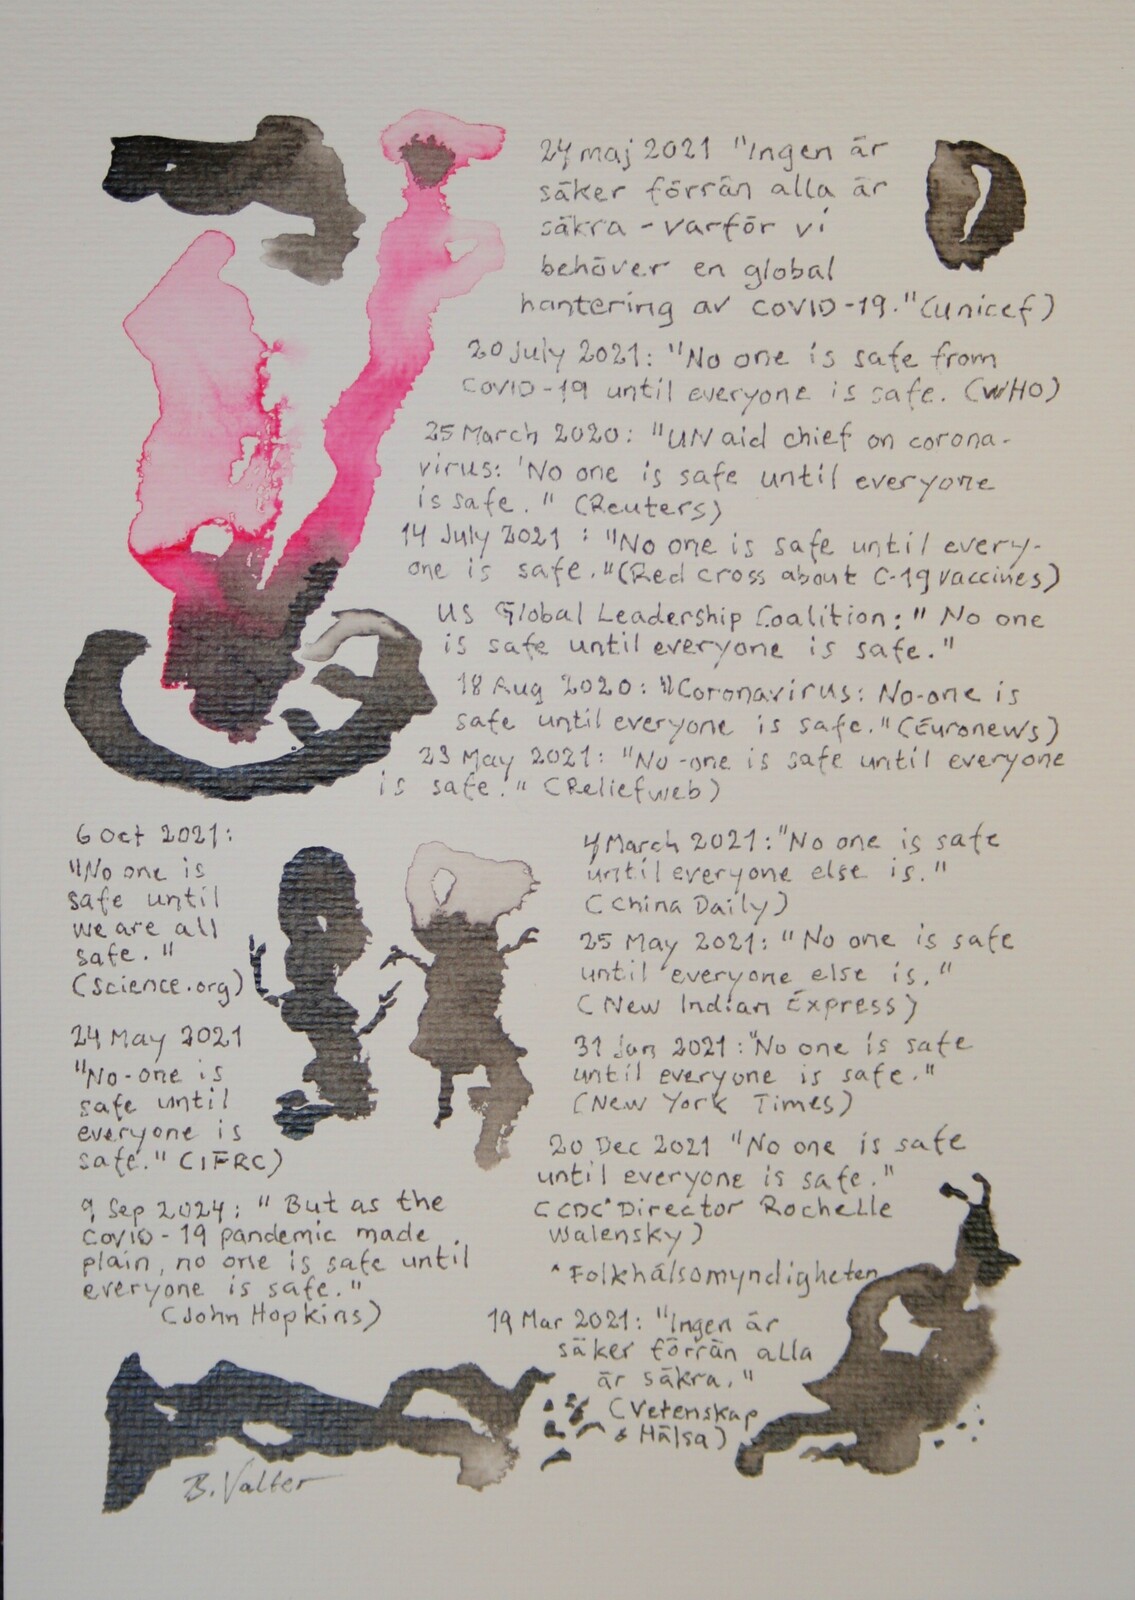 24 maj 2021 "Ingen är
säker förrän alla är
säkra - varför vi
behöver en global
hantering av COVID-19." (Unicef)
20 July 2021: "No one is safe from
COVID-19 until everyone is safe. (WHO)
25 March 2020: "UN aid chief on corona-
virus: 'No one is safe until everyone
is safe." (Reuters)
14 July 2021: "No one is safe until every-
one is safe." (Red cross about C-19 vaccines)
US Global Leadership Coalition: "No one
is safe until everyone is safe."
18 Aug 2020: "Coronavirus: No-one is
safe until everyone is safe." (Euronews)
23 May 2021: "No-one is safe until everyone
is safe." (Reliefweb)
6 Oct 2021:
"No one is
safe until
we are all
safe."
(science.org)
24 May 2021
"No-one is
safe until
everyone is
safe." (IFRC)
9 Sep 2024: "But as the
Covid-19 pandemic made
plain, no one is safe until
everyone is safe."
(John Hopkins)
4 March 2021: "No one is safe
until everyone else is."
(China Daily)
25 May 2021: "No one is safe
until everyone else is."
(New Indian Express)
31 Jan 2021: "No one is safe
until everyone is safe."
(New York Times)
20 Dec 2021 "No one is safe
until everyone is safe."
(CDC* Director Rochelle
Walensky)
* Folkhälsomyndigheten
19 Mar 2021: "Ingen är
säker förrän alla
är säkra."
(Vetenskap
& Hälsa)
B. Valter